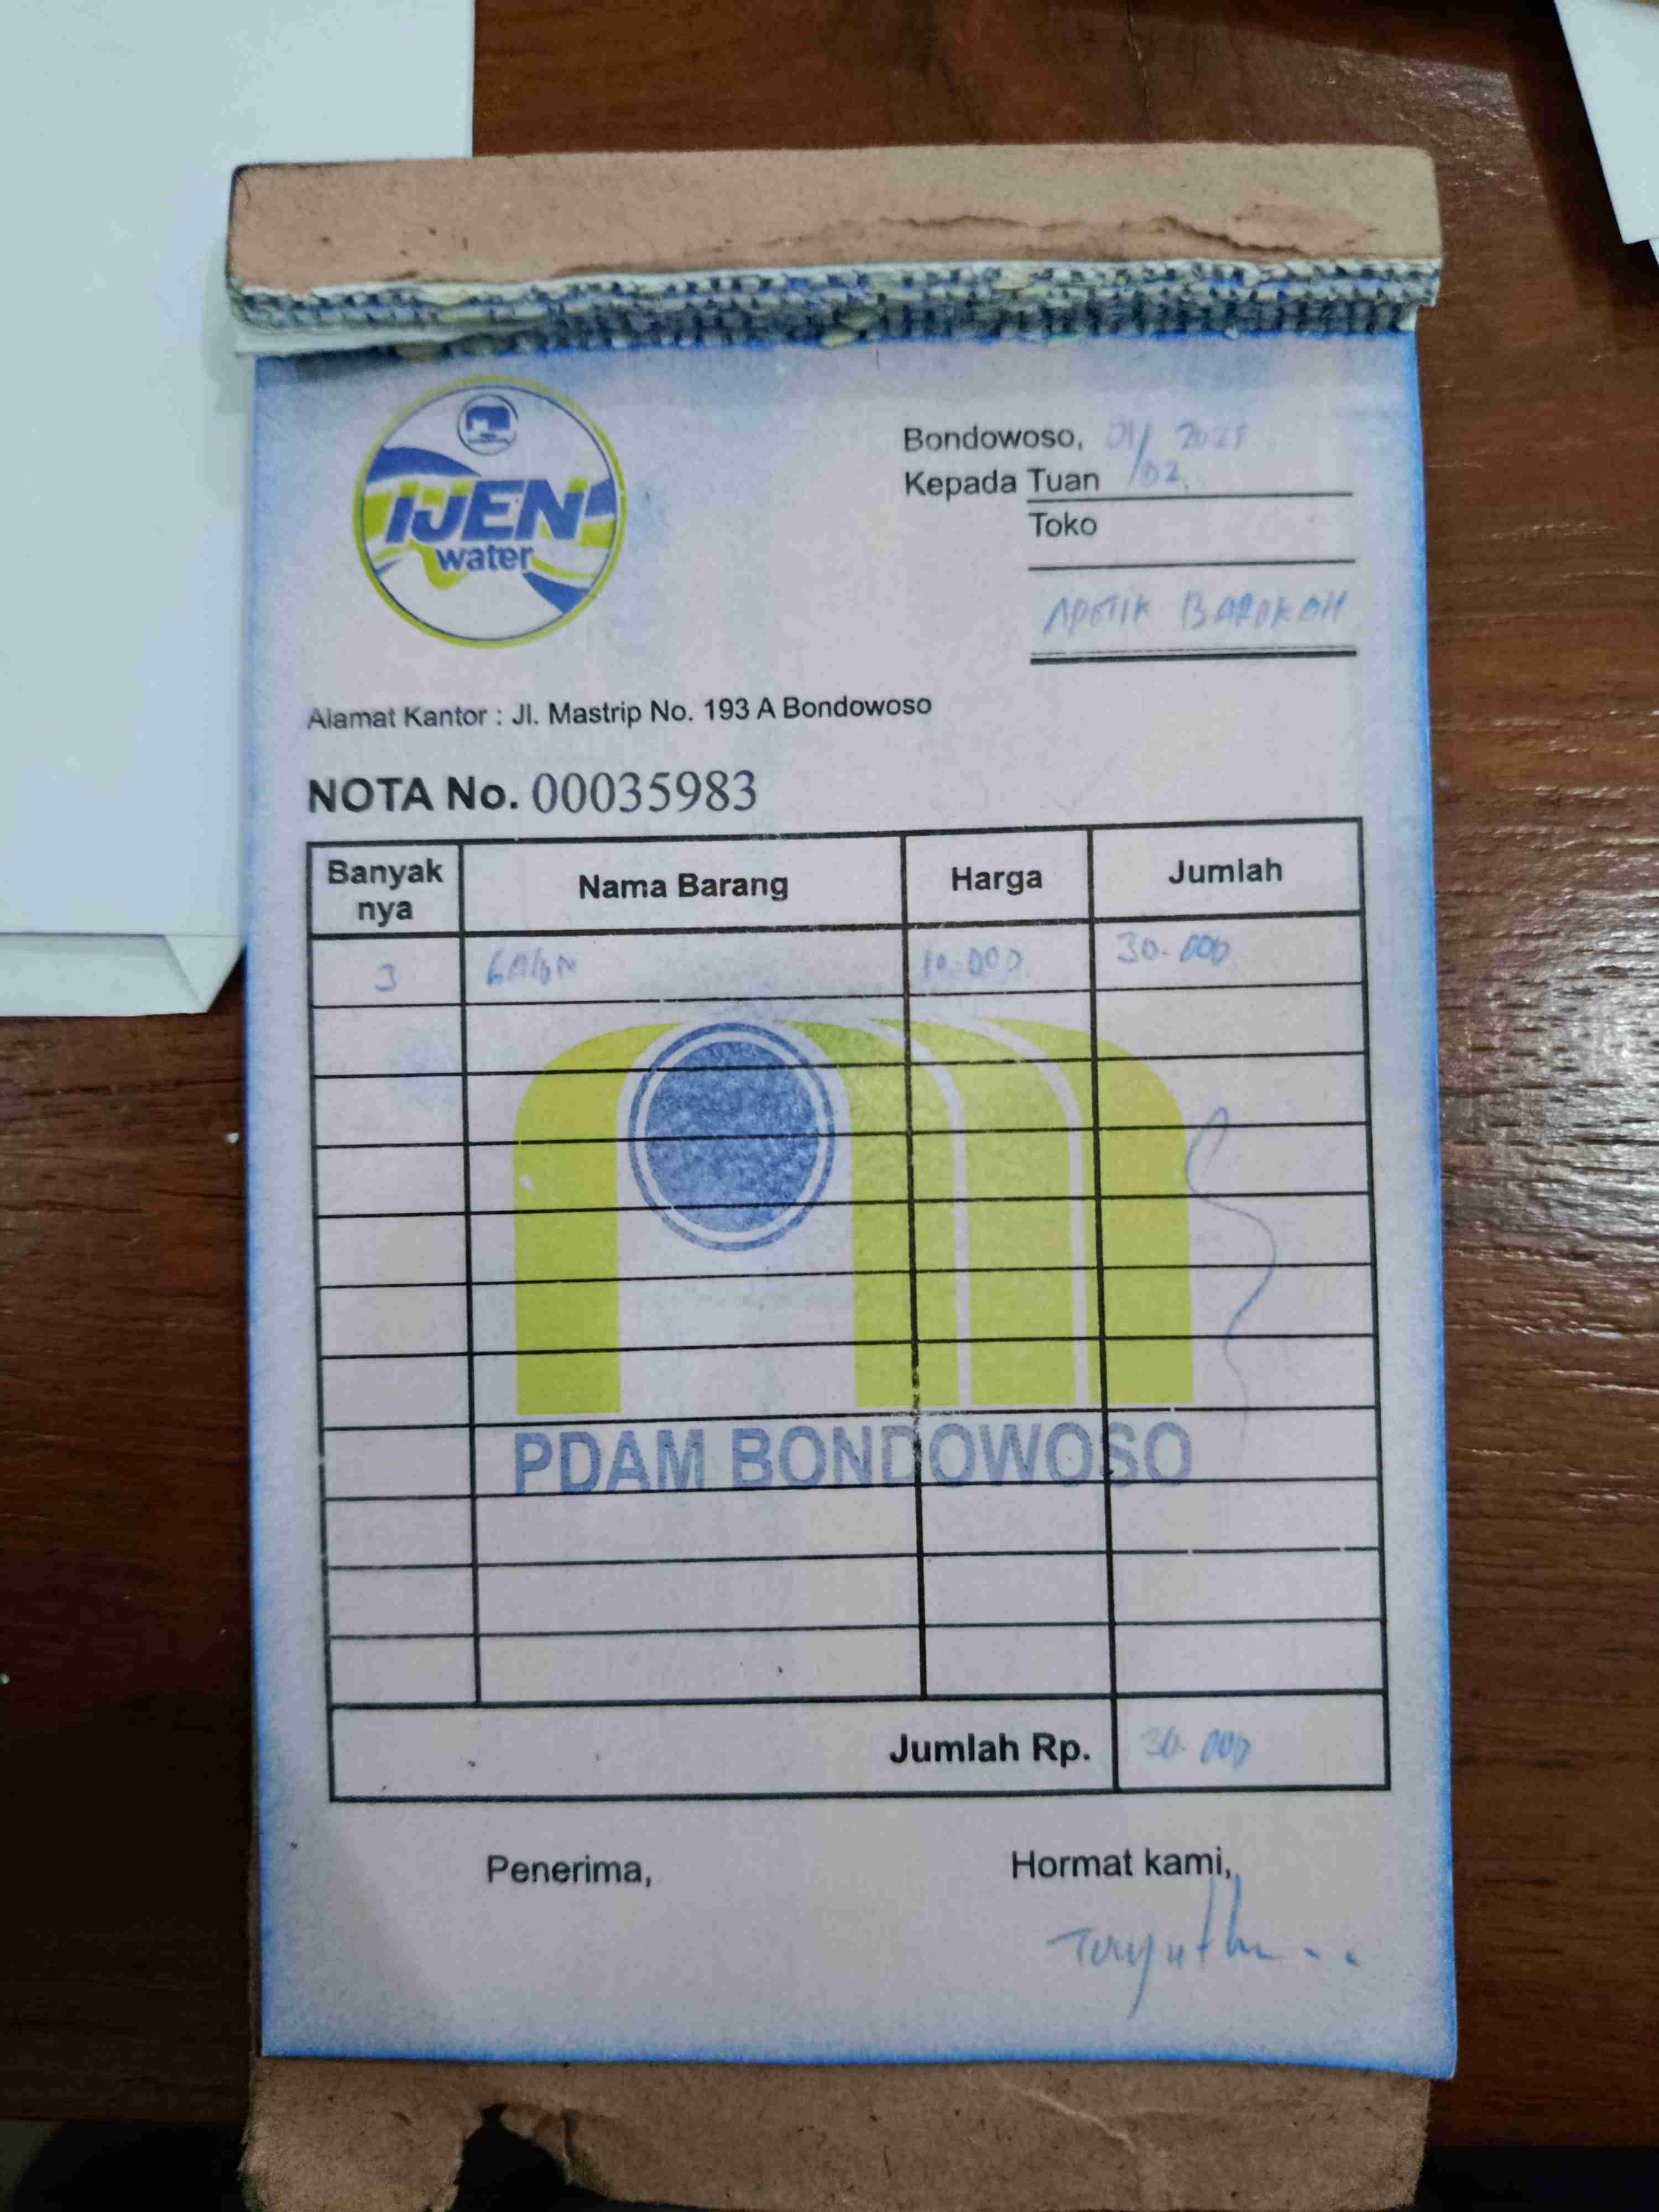 IJEN
water
Bondowoso, 01/02 2025
Kepada Tuan
Toko
APOTIK BAROKAH
Alamat Kantor : Jl. Mastrip No. 193 A Bondowoso
NOTA No. 00035983
Banyak nya Nama Barang Harga Jumlah
3 GALON 10.000 30.000
PDAM BONDOWOSO
Jumlah Rp. 30.000
Penerima, Hormat kami,